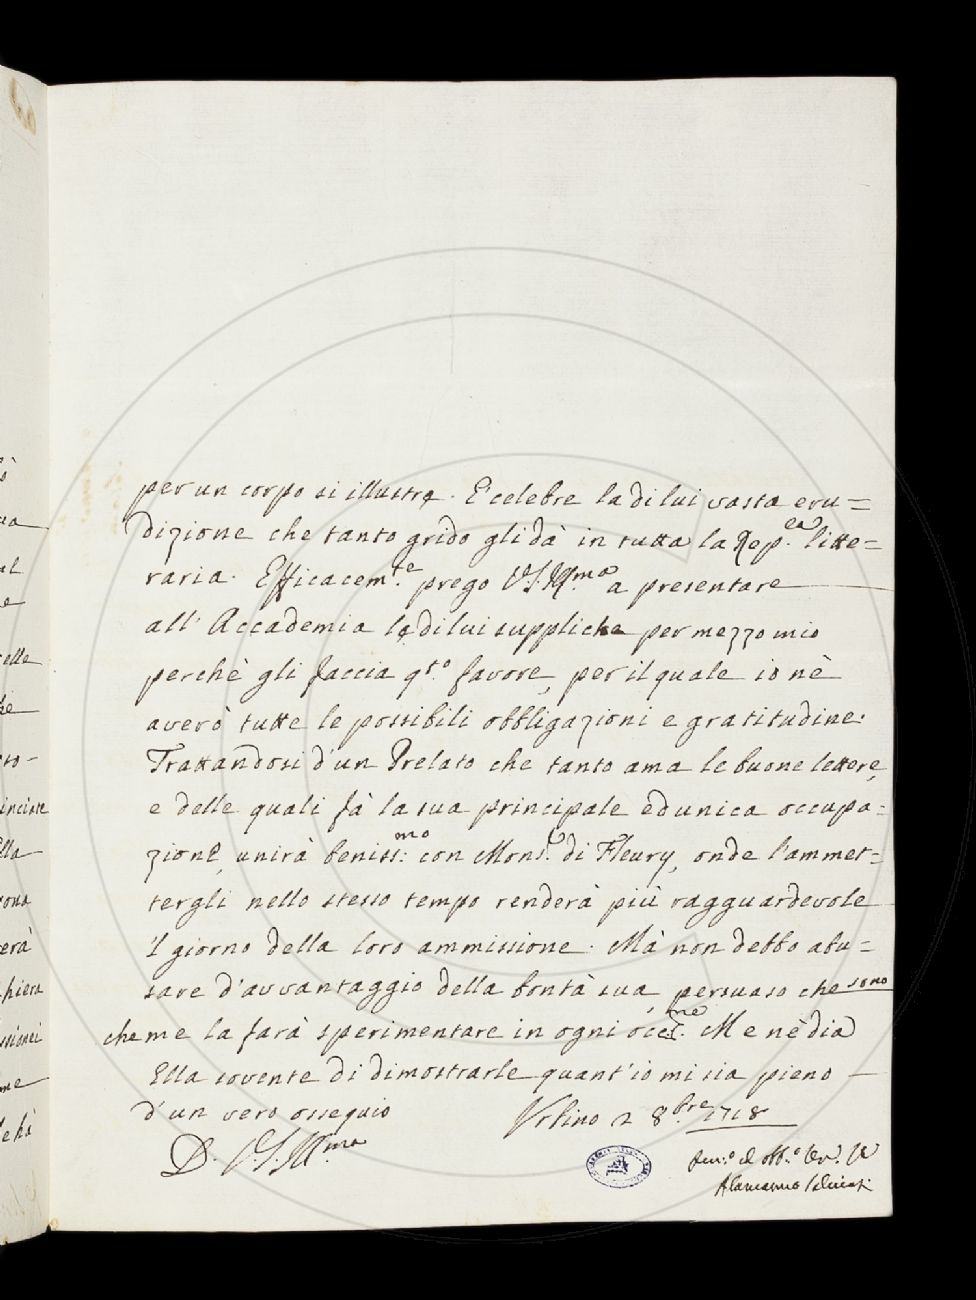 per un corpo si illustre. E' celebre la di lui vasta eru=
dizione che tanto grido gli dà in tutta la Rep.ca litte=
raria. Efficacem.te prego V.S. Ill.ma a presentare
all' Accademia le di lui suppliche per mezzo mio
perchè gli faccia q.to favore, per il quale io nè
averò tutte le possibili obbligazioni e gratitudine.
Trattandosi d'un Prelato che tanto ama le buone lettere,
e delle quali fà la sua principale ed unica occupa=
zione, unirà beniss.mo con Mons.r di Fleury, onde l'ammet=
tergli nello stesso tempo renderà più ragguardevole
'l giorno della loro ammissione. Mà non debbo abu=
sare d'avvantaggio della bontà sua, persuaso che sono
che me la farà sperimentare in ogni occ.ne. Me nè dia
Ella sovente di dimostrarle quant'io mi sia pieno
d'un vero ossequio
Urbino 2 8.bre 1718
D. V.S. Ill.ma
Alamanno Salviati